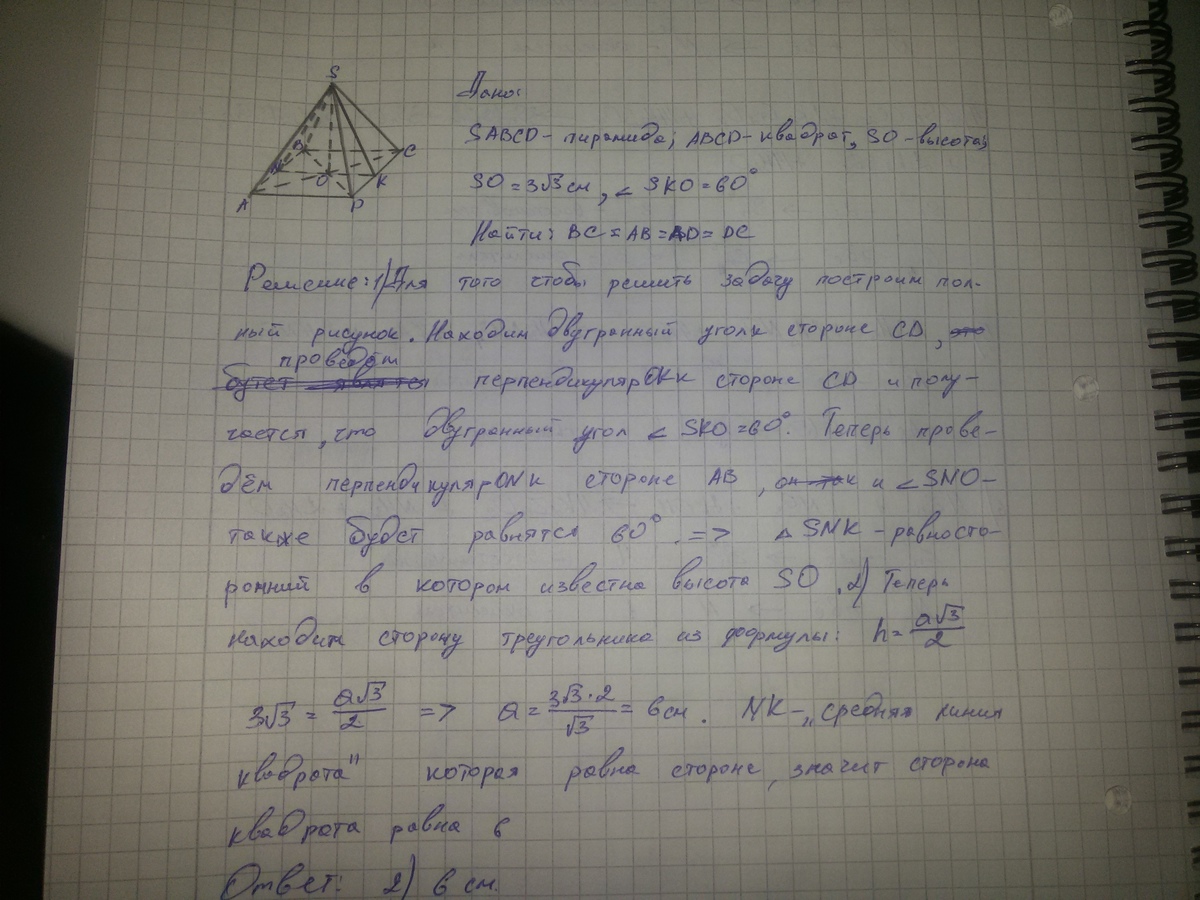 S
Дано:
SABCD - пирамида; ABCD - квадрат, SO - высота;
C
O
K
A
SO = 3√3 см, ∠ SKO = 60°
Найти: BC = AB = AD = DC
Решение: 1) Для того чтобы решить задачу построим пол-
ный рисунок. Находим двугранный угол к стороне CD,
проведём
перпендикуляр OK к стороне CD и полу-
чается, что двугранный угол ∠ SKO = 60°. Теперь прове-
дём перпендикуляр ON к стороне AB, и ∠ SNO -
также будет равнятся 60° => △ SNK - равносто-
ронний в котором известна высота SO. 2) Теперь
находим сторону треугольника из формулы: h = a√3/2
3√3 = a√3/2 => a = 3√3·2/√3 = 6 см. NK - "средняя линия
квадрата" которая равна стороне, значит сторона
квадрата равна 6
Ответ: 2) 6 см.